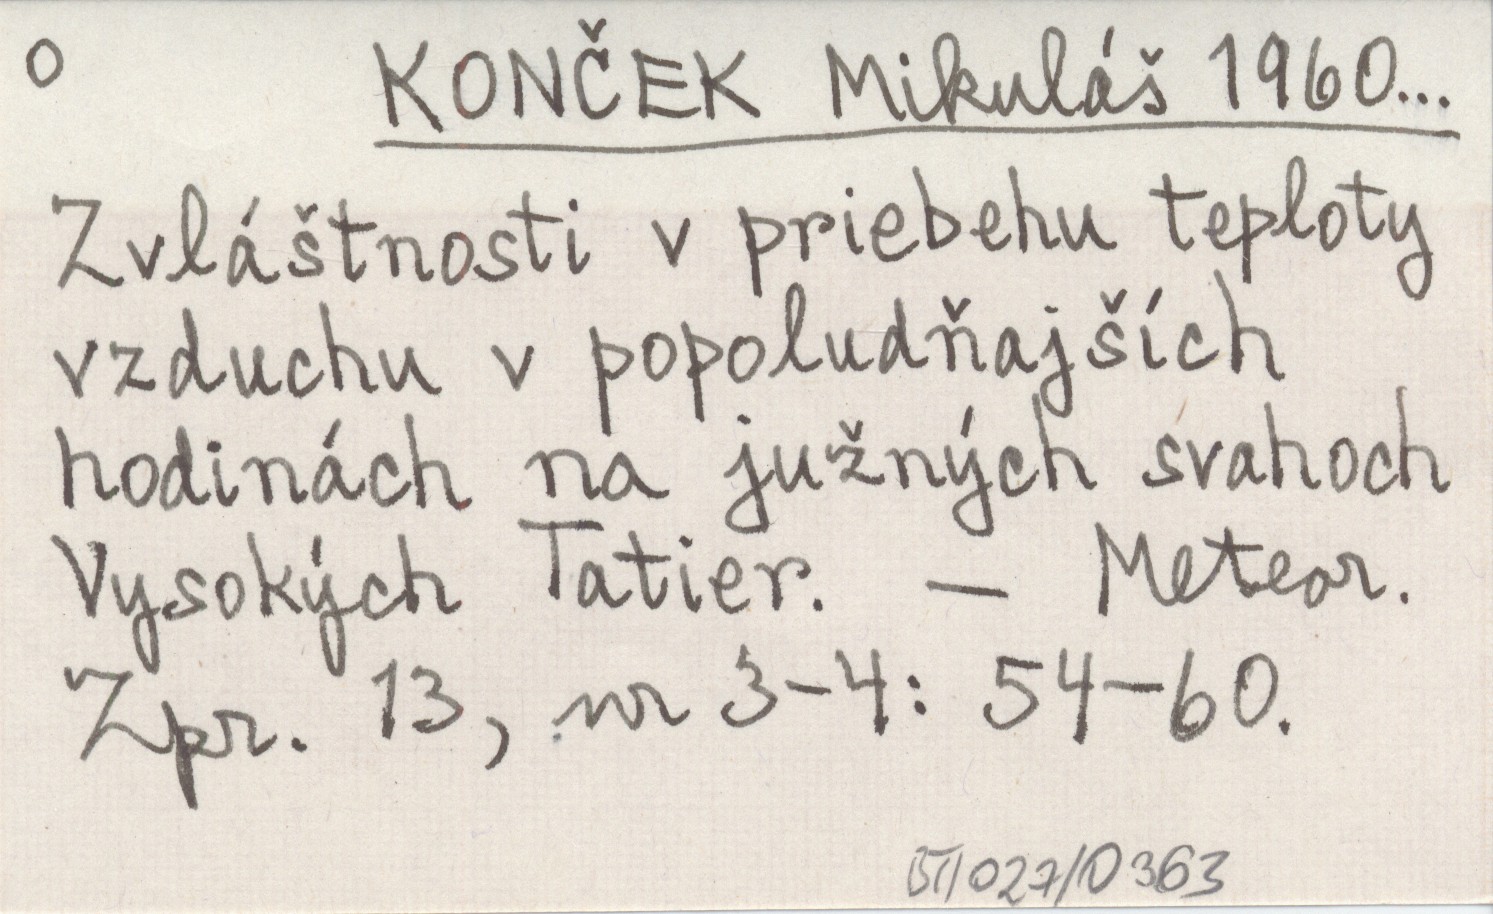 O
KONČEK Mikuláš 1960...
Zvláštnosti v priebehu teploty
vzduchu v popoludňajších
hodinách na južných svahoch
Vysokých Tatier. — Meteor.
Zpr. 13, nr 3-4: 54-60.
BT/027/0363